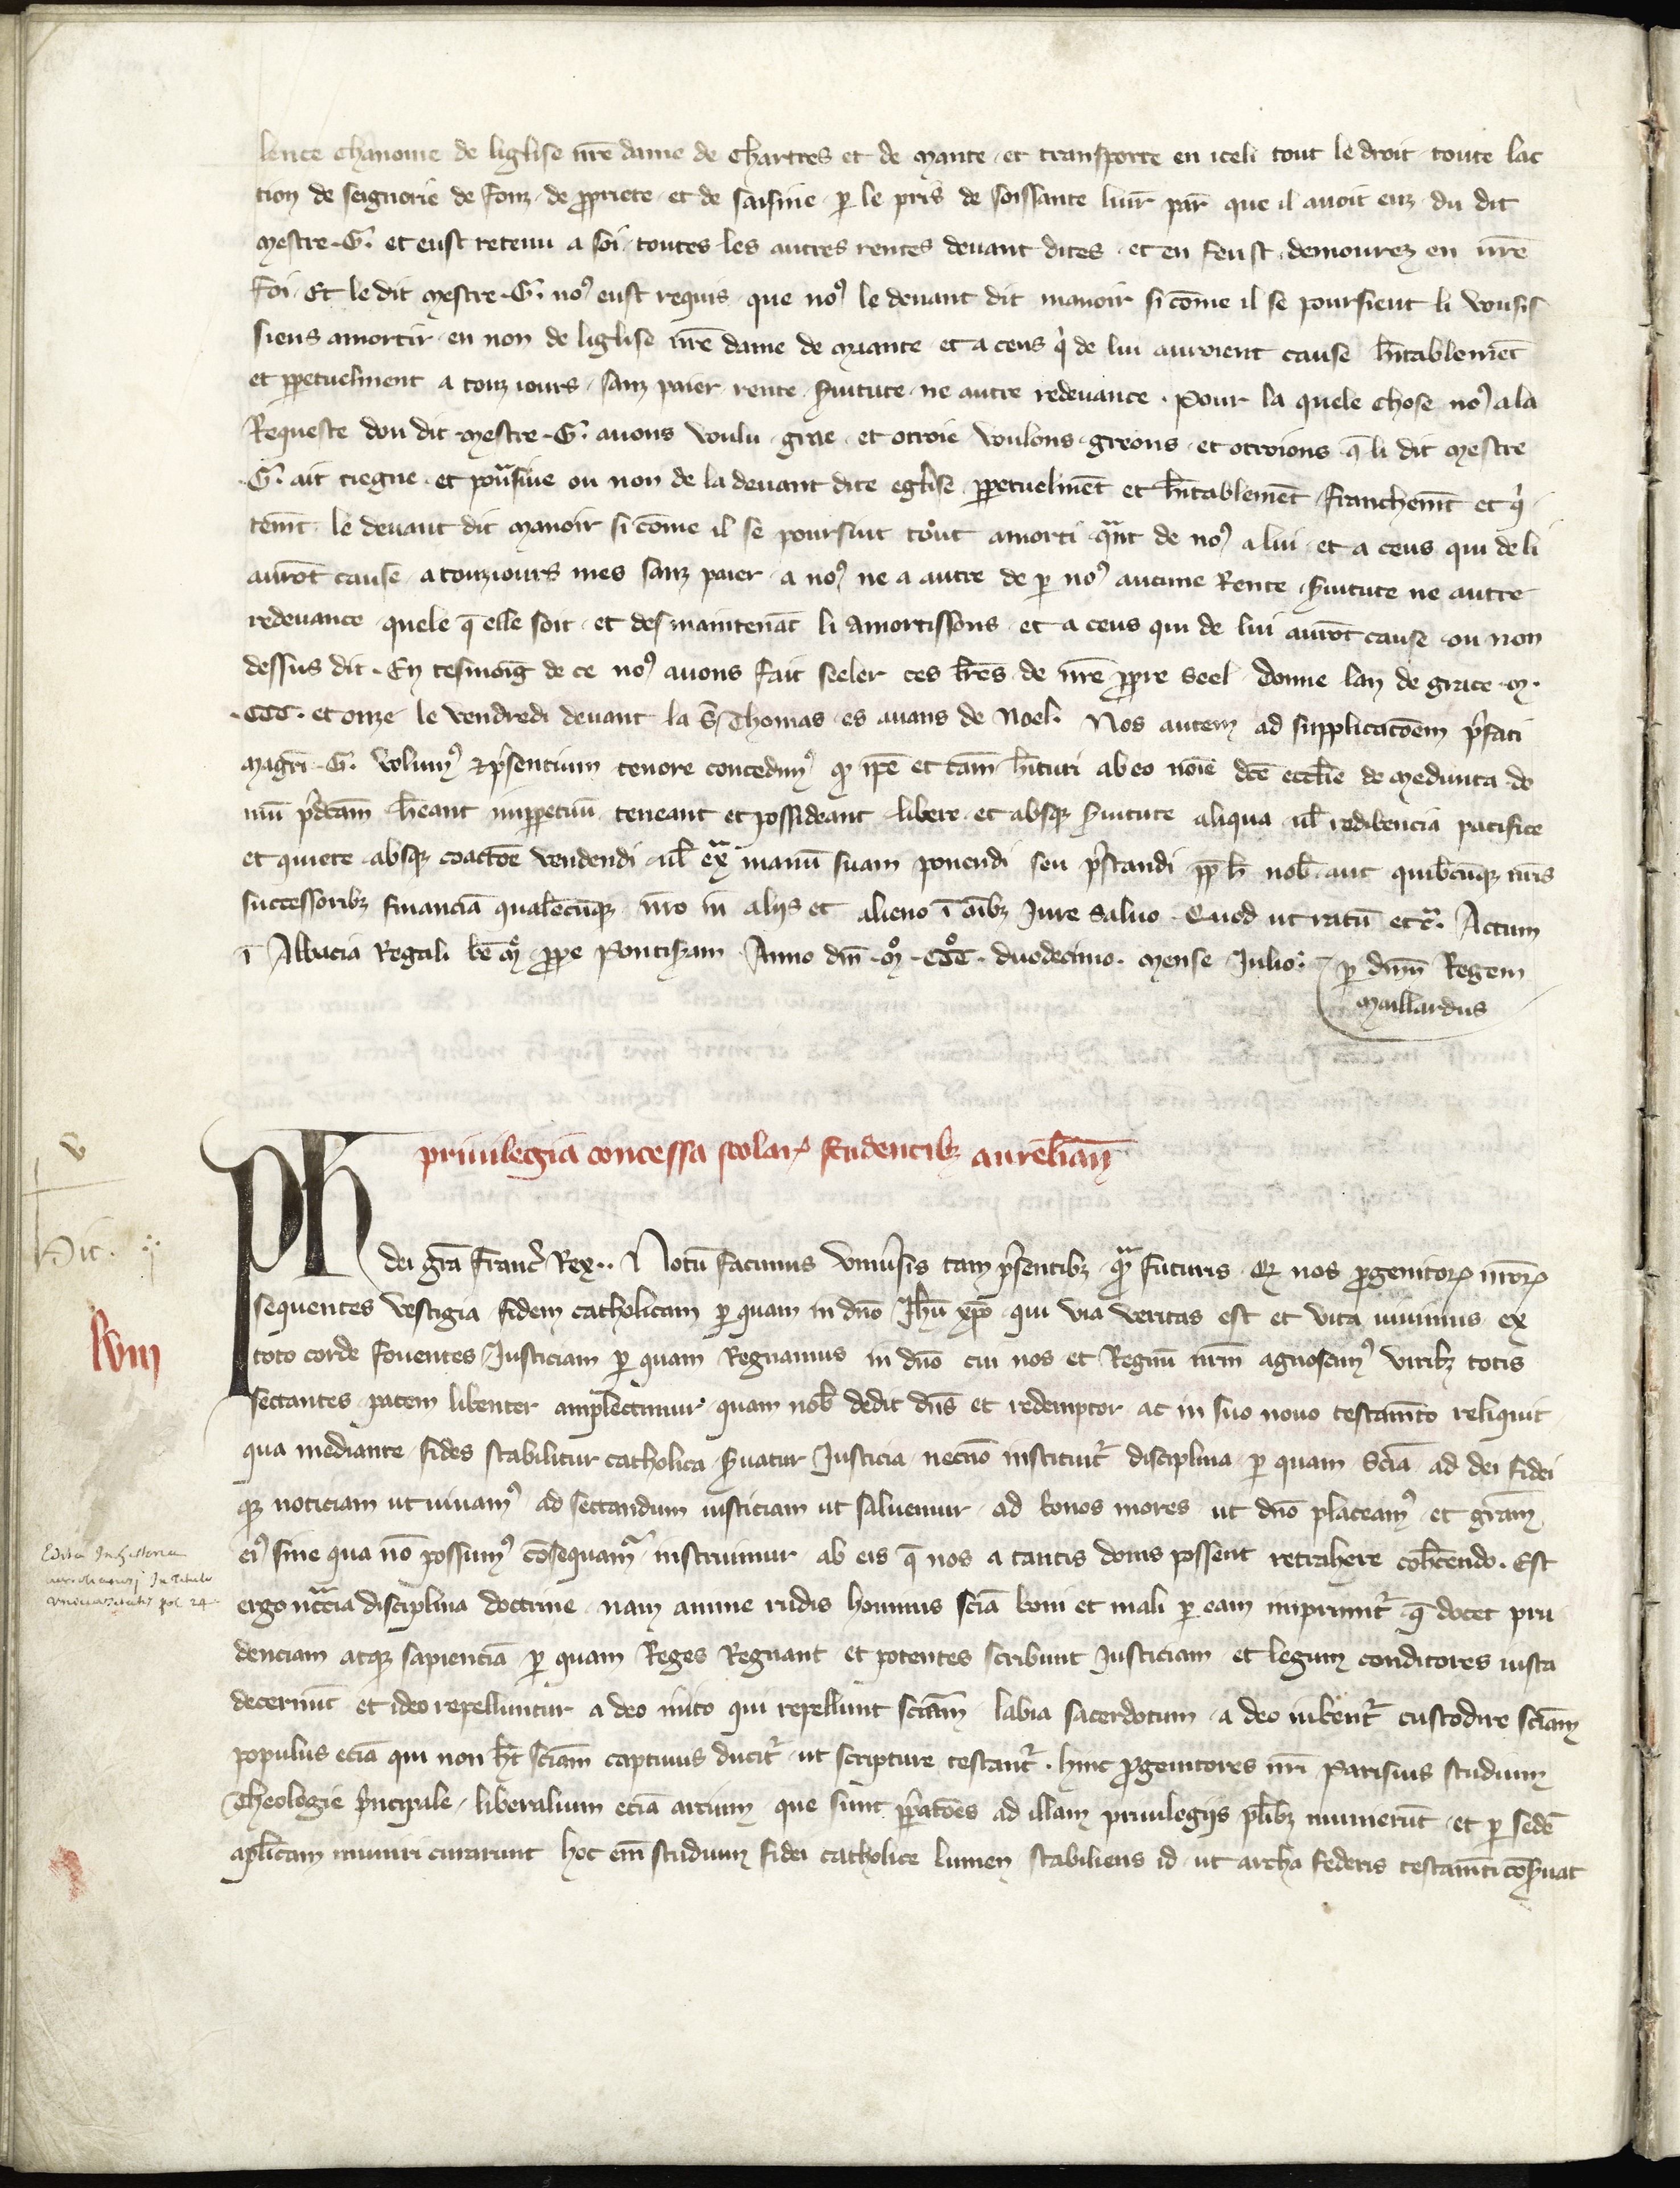 lence chanoine de liglise nr̄e dame de Chartres et de Mante et transporte en iceli tout le droit toute lac
tion de seignorie de fonz de ꝓpriete et de saisine ꝑ le pris de soissante liur̄ par̄ que il auoit euz du dit
Mestre .G. et eust retenu a soi toutes les autres rentes deuant dites et en feust demourez en nr̄e
foi Et le dit Mestre .G. noꝰ eust requis que noꝰ le deuant dit manoir si com̄e il se poursient li vousis
siens amortir en non de liglise nr̄e dame de Mante et a ceus q̇ de lui auroient cause h̄itablemēt
et ꝑpetuelment a touz iours sanz paier rente s̄uitute ne autre redeuance . Pour la quele chose noꝰ a la
Requeste dou dit Mestre .G. auons voulu grae et otroie voulons greons et otroions q̄ li dit Mestre
.G. ait tiegne et pour̄siue ou non de la deuant dite eglise ꝑpetuelmēt et h̄itablemēt franchem̄t et q̇
tem̄t le deuant dit Manoir si com̄e il se poursuit tout amorti q̄nt de noꝰ a lui et a ceus qui de li
aurōt cause a touziours mes sanz paier a noꝰ ne a autre de ꝑ noꝰ aucune Rente s̄uitute ne autre
redeuance quele q̄ elle soit et des maintenāt li amortissons et a ceus qui de lui aurōt cause ou non
dessus dit . En tesmoīg de ce noꝰ auons fait seeler ces lr̄es de nr̄e ꝓpre seel Donne lan de grace .M.
.CCC. et onze le vendredi deuant la S̄. Thomas es auans de Noel . Nos autem ad supplicatōem p̄fati
magr̄i .G. volumꝰ ⁊ p̄sentium tenore concedimꝰ qd̄ ip̄e et cām h̄ituri ab eo noīe dc̄e eccl̄ie de Medunta do
mū p̄dc̄am h̄eant imꝑpetuū teneant et possideant libere et absqꝫ s̄uitute aliqua ul̄ redibencia pacifice
et quiete absqꝫ coactōe vendendi ul̄ ex̄ manū suam ponendi seu p̄standi ꝓp̄ h̄ nob̄ aut quibꝯcūqꝫ nr̄is
successoribꝫ financiā qualecūqꝫ nr̄o in aliis et alieno ī oībꝫ Jure saluo . Quod ut ratū etc̄. Actum
ī Abbacia Regali bē M̄ ꝓpe Pontisaram Anno dn̄i .Mº. CCCº. duodecimo . Mense Julio . ꝑ dn̄m Regem
Maillardus
priuilegia concessa scolarꝵ studentibꝫ aurelian̄
Ph dei gr̄a Franc̄ Rex . Notū facimus vniuersis tam p̄sentibꝫ q̄ futuris . Qd̄ nos ꝓgenitorꝵ nr̄orꝵ
sequentes vestigia fidem catholicam ꝑ quam in dn̄o Jhū xp̄o qui via veritas est et vita viuimus ex
toto corde fouentes Justiciam ꝑ quam Regnamus in dn̄o cui nos et Regnū nr̄m agnoscimꝰ viribꝫ totis
sectantes pacem libenter amplectimur quam nob̄ dedit dn̄s et redemptor ac in suo nouo testam̄to reliquit
qua mediante fides stabilitur catholica s̄uatur Justicia necnō instituit᷑ disciplina ꝑ quam sciā ad dei fidei
qꝫ noticiam ut viuamꝰ ad sectandum iusticiam ut saluemur ad bonos mores ut dn̄o placeamꝰ et gr̄am
eiꝰ sine qua nō possumꝰ cōsequam᷑ instruimur ab eis q̄ nos a tantis donis possent retrahere cohib̄endo . Est
ergo nēccīa disciplina doctrine nam anime rudis hominis sciā boni et mali ꝑ eam imprimit᷑ q̄ docet pru
denciam atqꝫ sapienciā ꝑ quam Reges Regnant et potentes scribunt Justiciam et legum conditores iusta
decernūt et ideo repelluntur a deo m̄ito qui repellunt sciām labia sacerdotum a deo iubent᷑ custodire sciām
populus eciā qui non h̄t sciām captiuus ducit᷑ ut scripture testant᷑ . hinc ꝓgenitores nr̄i Parisius studium
Theologie p̄ncipale liberalium eciā artium que sunt p̄ꝑatōes ad illam priuilegiis plībꝫ munierūt et ꝑ sedē
apl̄icam muniri curarunt hoc em̄ studium fidei catholice lumen stabiliens id ut archa federis testam̄ti cōs̄uat
Edita In historia
aurelianensi In titulo
vniuersitatis fol 24